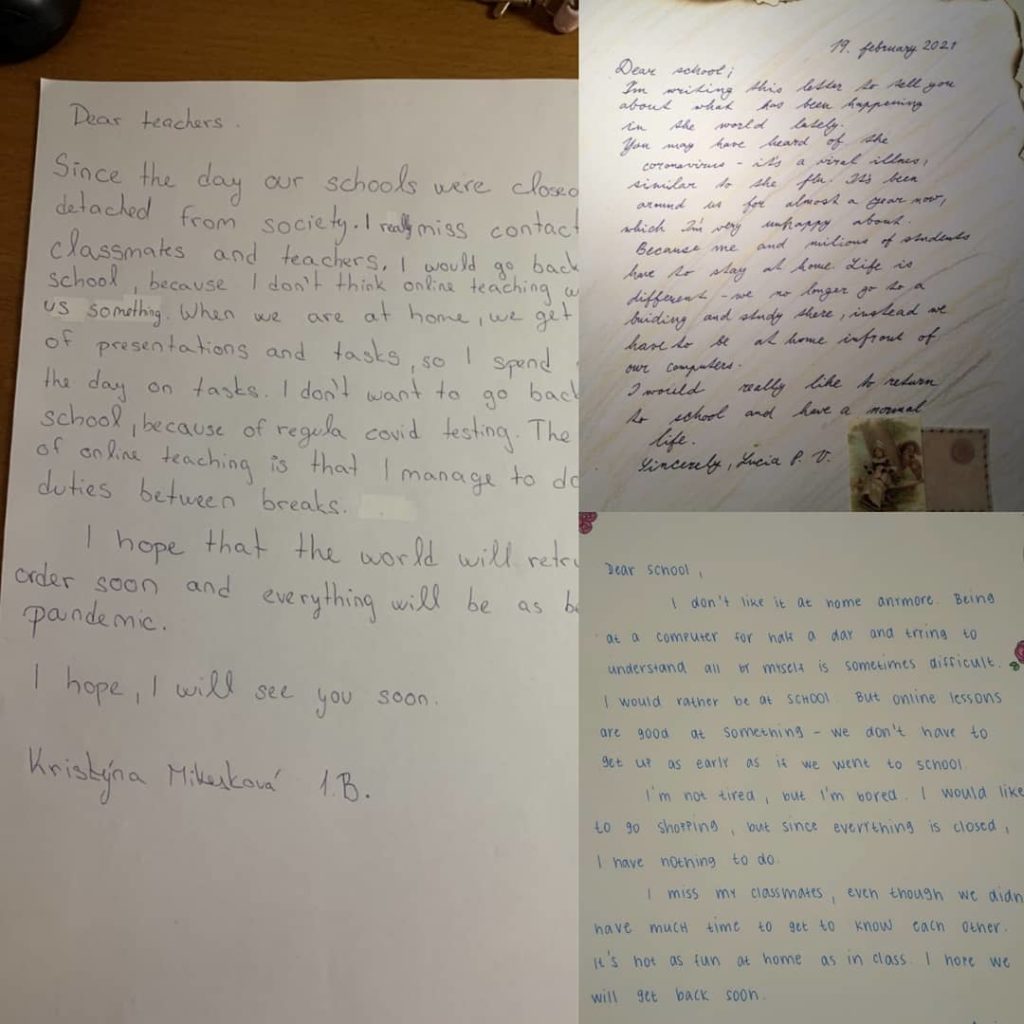 Dear teachers.
Since the day our schools were closed
detached from society. I really miss contact
classmates and teachers. I would go back
school, because I don't think online teaching
us something. When we are at home, we get
of presentations and tasks, so I spend
the day on tasks. I don't want to go back
school, because of regula covid testing. The
of online teaching is that I manage to do
duties between breaks.
I hope that the world will retru
order soon and everything will be as be
pandemic.
I hope, I will see you soon.
Kristýna Mikesková 1.B.
19. february 2021
Dear school;
I'm writing this letter to tell you
about what has been happening
in the world lately.
You may have heard of the
coronavirus - it's a viral illnes,
similar to the flu. It's been
around us for almost a year now,
which I'm very unhappy about.
Because me and milions of students
have to stay at home. Life is
different - we no longer go to a
buiding and study there, instead we
have to be at home infront of
our computers.
I would really like to return
to school and have a normal
life.
Sincerely, Lucia P. V.
Dear school,
I don't like it at home anymore. Being
at a computer for half a day and trying to
understand all by myself is sometimes difficult.
I would rather be at school. But online lessons
are good at something - we don't have to
get up as early as if we went to school.
I'm not tired, but I'm bored. I would like
to go shopping, but since everything is closed,
I have nothing to do.
I miss my classmates, even though we didn
have much time to get to know each other.
It's not as fun at home as in class. I hope we
will get back soon.